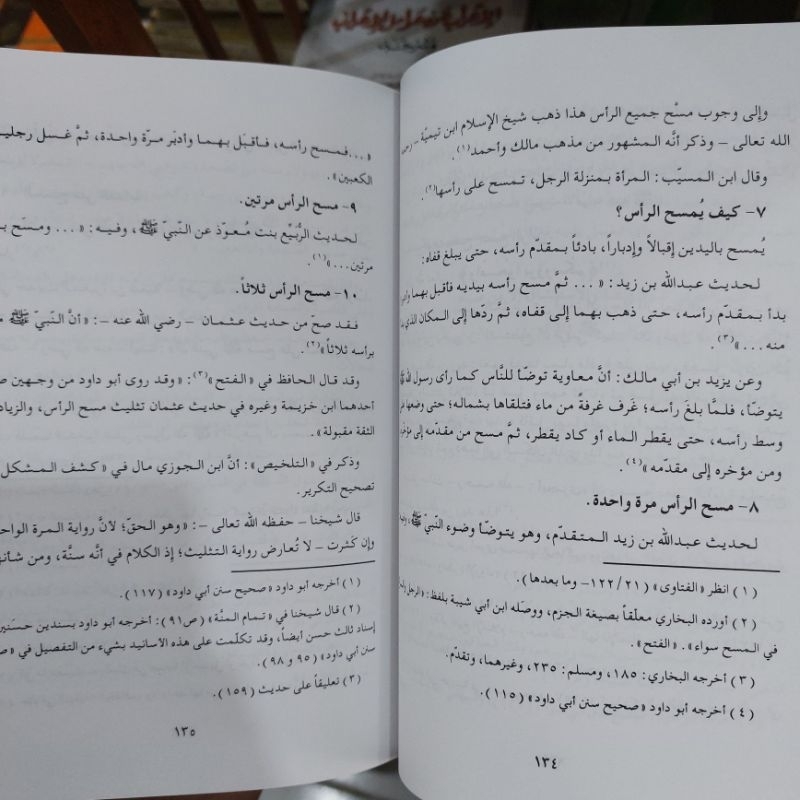 وإلى وجوب مسْح جميع الرأس هذا ذهب شيخ الإسلام ابن تيميّة -
الله تعالى - وذكر أنَّه المشهور من مذهب مالك وأحمد(١).
وقال ابن المسيّب: المرأة بمنزلة الرجل، تمسح على رأسها(٢).
٧- كيف يُمسح الرأس؟
يُمسح باليدين إقبالاً وإدباراً، بادئاً بمقدّم رأسه، حتى يبلغ قفاه:
لحديث عبدالله بن زيد: «... ثمَّ مسح رأسه بيديه فأقبل بهما
بدأ بمقدّم رأسه، حتى ذهب بهما إلى قفاه، ثمَّ ردّها إلى المكان الذي
منه ...»(٣).
وعن يزيد بن أبي مالك: أنَّ معاوية توضّأ للنَّاس كما رأى رسول الله
يتوضّأ، فلمَّا بلغَ رأسه؛ غَرف غرفةً من ماء فتلقاها بشماله؛ حتى وضعها
وسط رأسه، حتى يقطر الماء أو كاد يقطر، ثمَّ مسح من مقدّمه إلى
ومن مؤخره إلى مقدّمه»(٤).
٨- مسح الرأس مرة واحدة.
لحديث عبدالله بن زيد المتقدّم، وهو يتوضّأ وضوء النّبيّ ﷺ،
(١) انظر «الفتاوى» (٢١/١٢٢- وما بعدها).
(٢) أورده البخاري معلّقاً بصيغة الجزم، ووصله ابن أبي شيبة بلفظ: «الرجل
في المسح سواء». «الفتح».
(٣) أخرجه البخاري: ١٨٥، ومسلم: ٢٣٥، وغيرهما، وتقدّم.
(٤) أخرجه أبو داود «صحيح سنن أبي داود» (١١٥).
١٣٤
«...فمسح رأسه، فأقبَل بهما وأدبَر مرّة واحدة، ثمَّ غسل
الكعبين».
٩- مسح الرأس مرتين.
لحديث الرُّبَيِّع بنت مُعوّذ عن النّبيّ ﷺ، وفيه: «... ومسَح
مرتين...»(١).
١٠- مسح الرأس ثلاثاً.
فقد صحّ من حديث عثمان - رضي الله عنه -: «أنَّ النّبيّ ﷺ
برأسه ثلاثاً»(٢).
وقد قال الحافظ في «الفتح»(٣): «وقد روى أبو داود من وجهين
أحدهما ابن خزيمة وغيره في حديث عثمان تثليث مسح الرأس،
الثقة مقبولة».
وذكر في «التلخيص»: أنَّ ابن الجوزي مال في «كشف المشكل
تصحيح التكرير.
قال شيخنا - حفظه الله تعالى -: «وهو الحقّ؛ لأنَّ رواية المرة
وإن كَثرت - لا تُعارض رواية التثليث؛ إذ الكلام في أنَّه سنَّة، ومن
(١) أخرجه أبو داود «صحيح سنن أبي داود» (١١٧).
(٢) قال شيخنا في «تمام المنَّة» (ص٩١): أخرجه أبو داود بسندين حسنين
إسناد ثالث حسن أيضاً، وقد تكلّمت على هذه الأسانيد بشيء من التفصيل في
سنن أبي داود» (٩٥ و ٩٨).
(٣) تعليقاً على حديث (١٥٩).
١٣٥